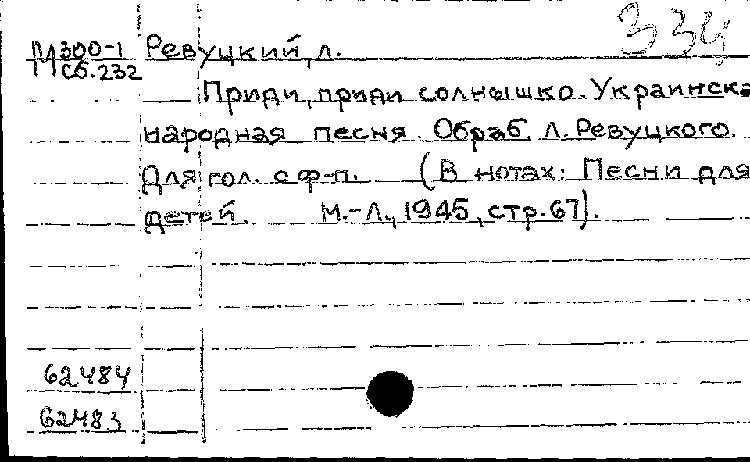 334
М300-1 Ревуцкий, л.
Сб.232
Приди, приди солнышко. Украинска
народная песня. Обраб. Л. Ревуцкого.
Для гол. с ф-п. (В нотах: Песни для
детей. М.-Л., 1945, стр. 67).
62484
62483